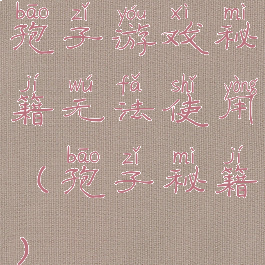 bāo zǐ yóu xì mì
孢子游戏秘
jí wú fǎ shǐ yòng
籍无法使用
bāo zǐ mì jí
（孢子秘籍
）